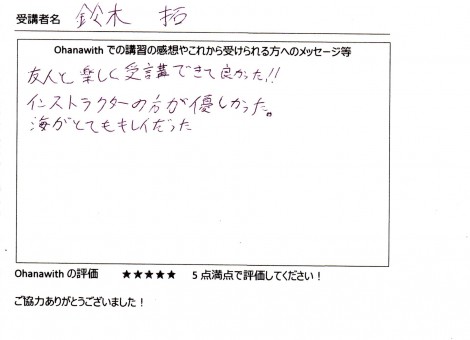 受講者名 鈴木 拓
Ohanawith での講習の感想やこれから受けられる方へのメッセージ等
友人と楽しく受講できて良かった!!
インストラクターの方が優しかった。
海がとてもキレイだった
Ohanawith の評価 ★★★★★ 5 点満点で評価してください！
ご協力ありがとうございました！